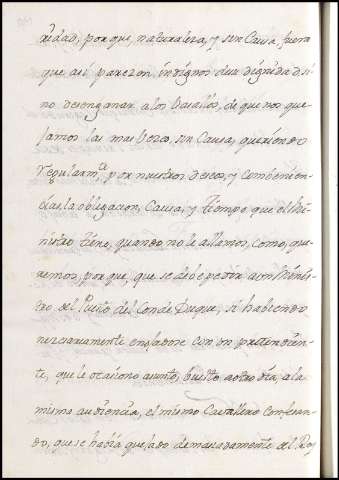 ridad, por que, naturaleza, y sin Causa, fuera
que asi parezcan indignos de su dignidad, si
no desenganar a los Vasallos, de que nos que
Jamos las mas Veces, sin Causa, queriendo
regularm.te por nuestros deseos, y combenien
cias, la obligacion, Causa, y tiempo que el Mi
nistro tiene, quando no le allamos, como, que
remos, por que, que se debe pedir a un Minis
tro del Puesto del Conde Duque, si habiendo
necesariamente enfadose con un pretendien
te, que le ocasiono asunto, buelto a otro dia, a la
misma audiencia, el mismo Cavallero confesan
do, que se habia quejado demasiadamente del Rey